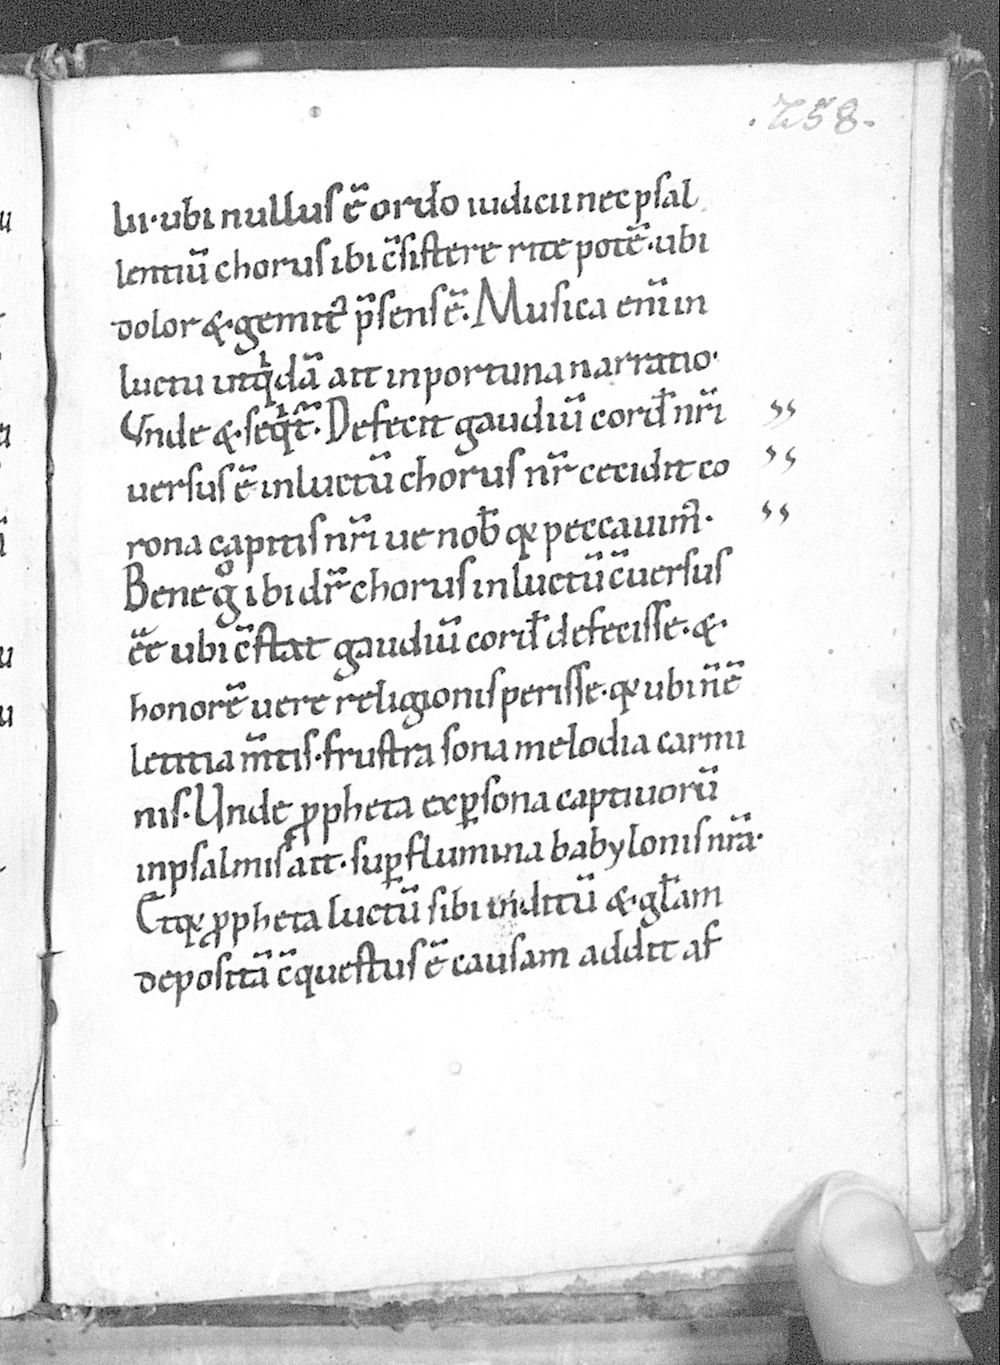 .258.
lii· ubi nullus ē ordo iudicii nec psal
lentiū chorus ibi c̄sistere rite potē· ubi
dolor &·gemit᷒ p̄sens ē· Musica eni᷒ in
luctu ut q̇dā ait inportuna narratio·
Unde &·seq̇t̄· Defecit gaudiū cord̄ nr̄i
uersus ē in luctū chorus nr̄ cecidit co
rona capitis nr̄i ue nob̄ qꝛ peccauim᷒·
Bene g̊ ibi dr̄ chorus in luctū c̄uersus
ēē ubi c̄stat gaudiū cord̄ defecisse·&·
honorē uere religionis perisse· qꝛ ubi n̄ ē
letitia m̄tis· frustra sona melodia carmi
nis· Unde ꝓpheta ex ꝑsona captiuorū
in psalmis ait· suꝑ flumina babylonis nr̄a·
Et qꝛ ꝓpheta luctū sibi inditū &·gl̄am
depositā c̄questus ē causam addit af